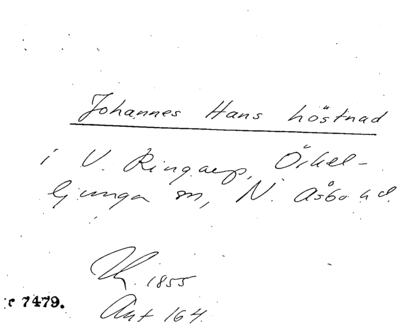 Johannes Hans höstnad
i V. Ringarp, Örkel-
ljunga sn, N. Åsbo hd.
1855
c 7479.
Ant 164.